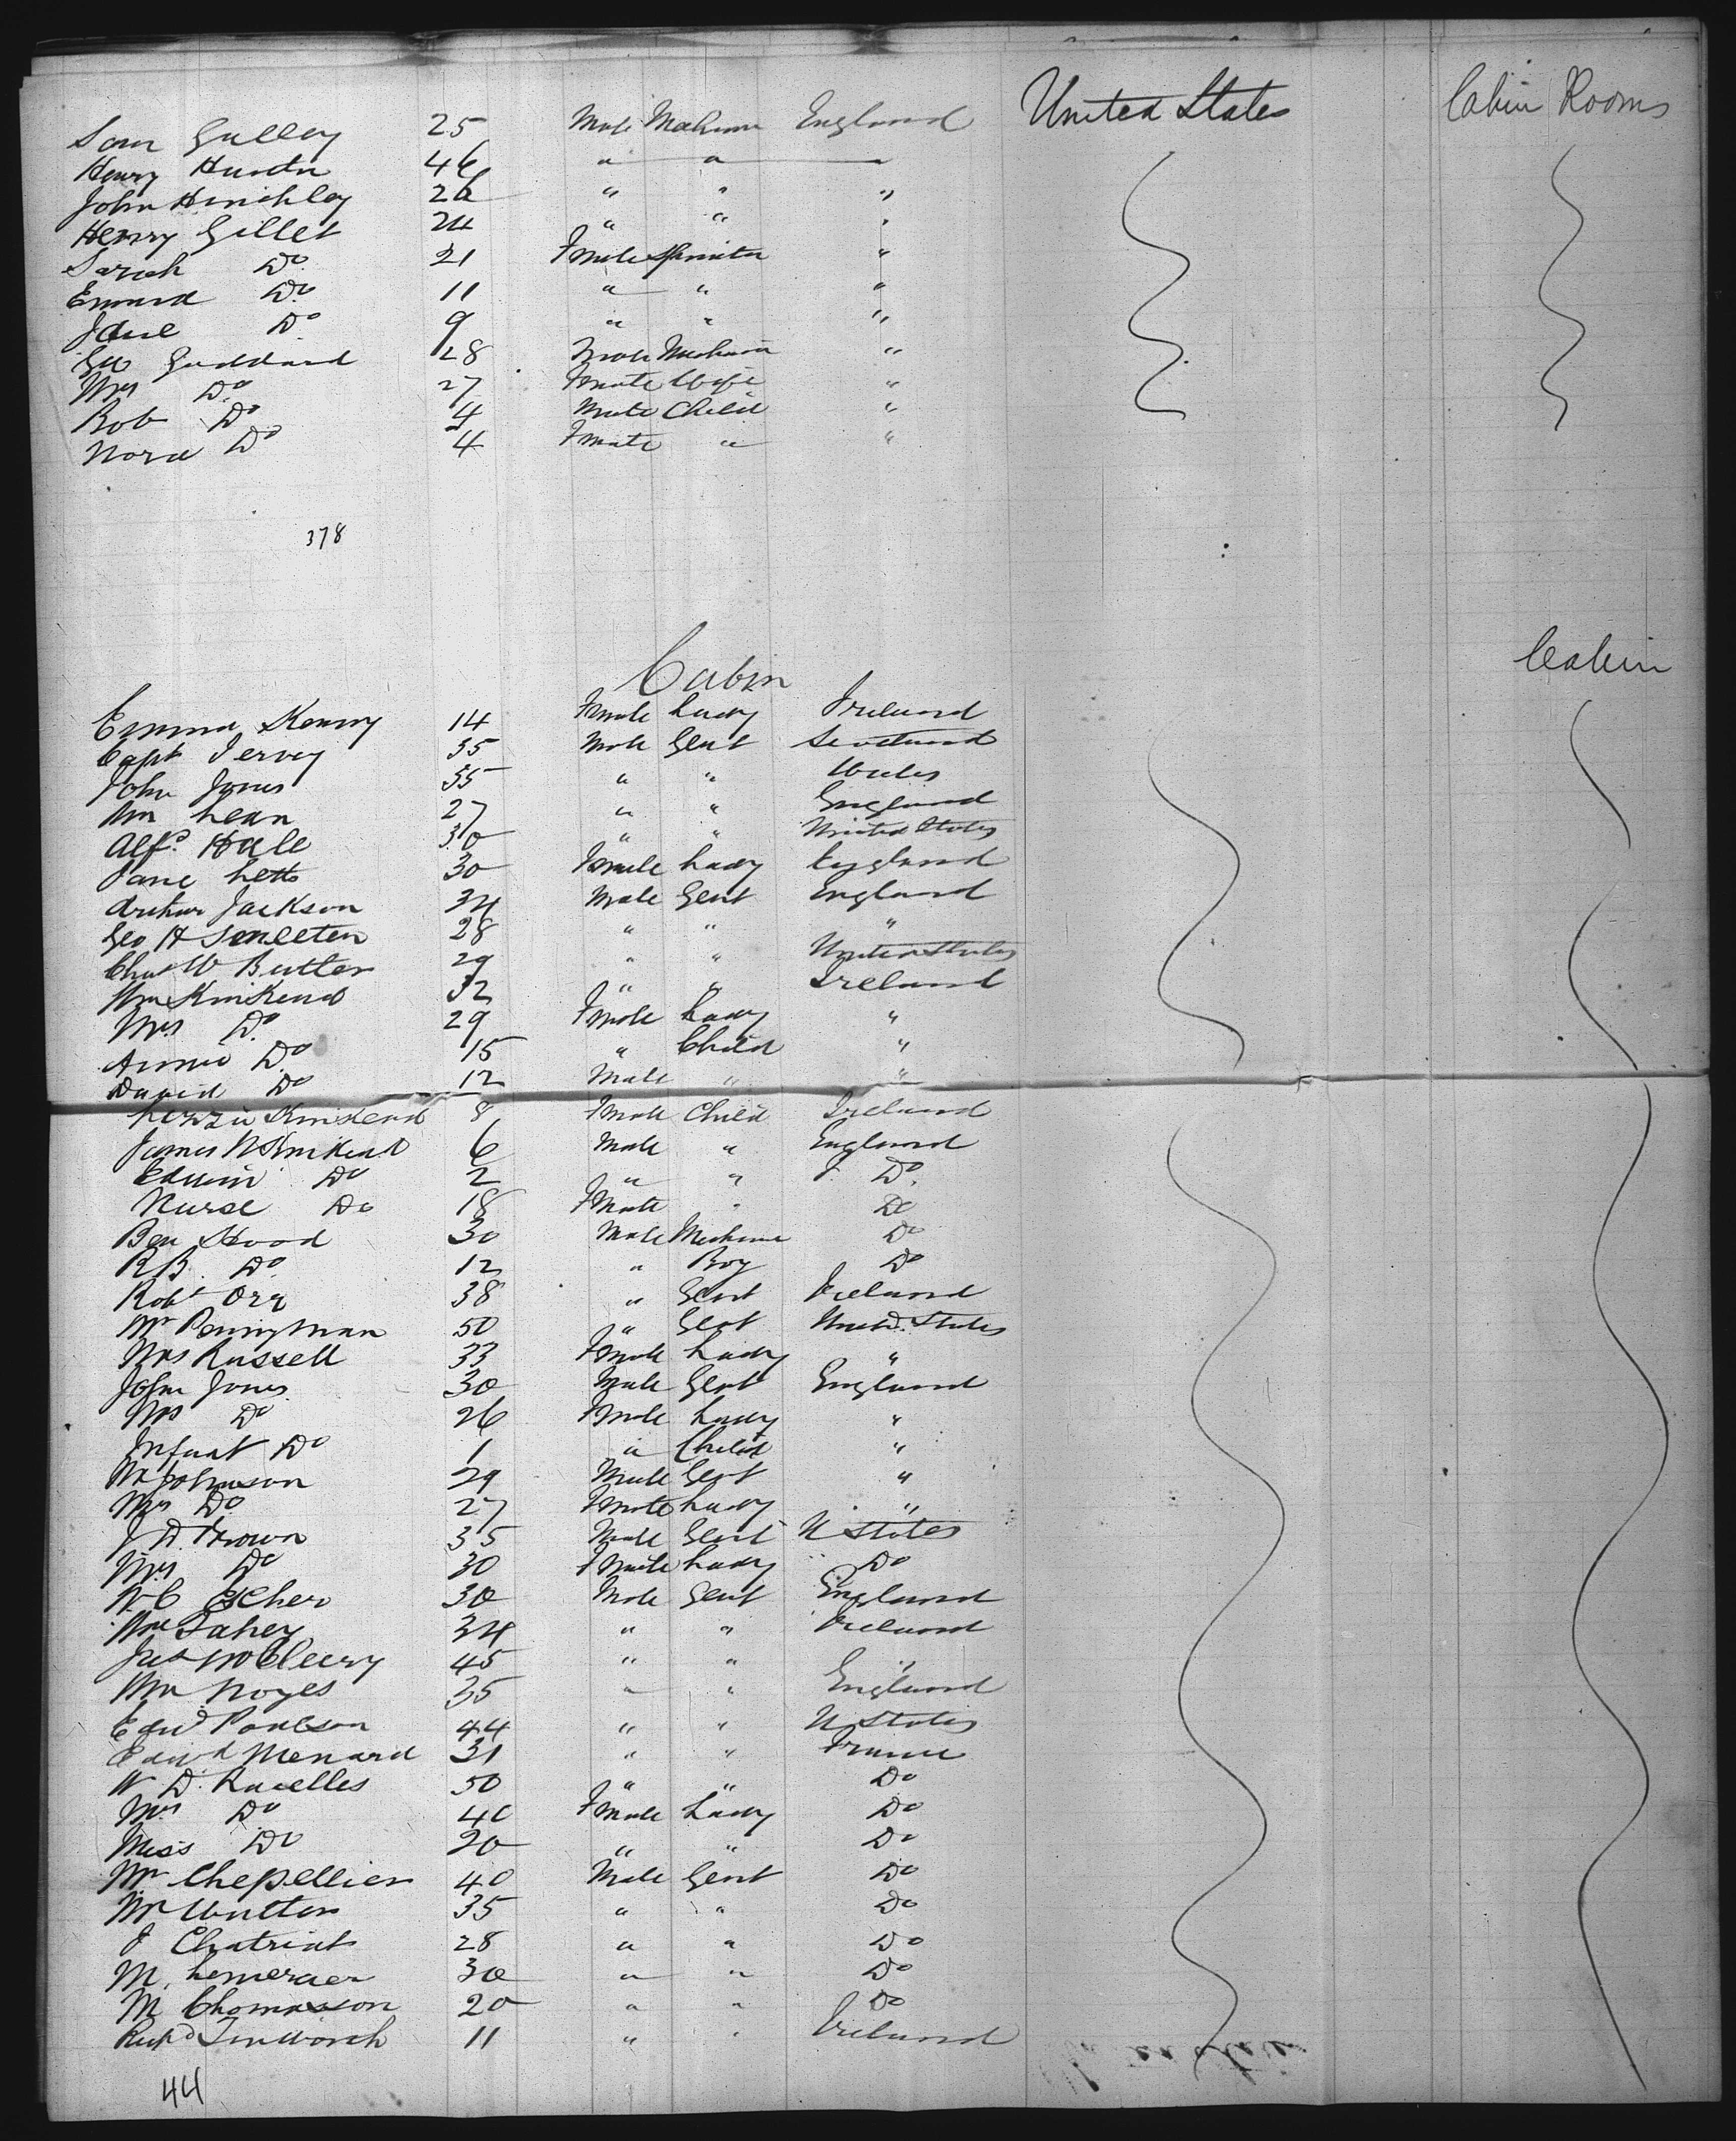 Sam Gulley 25 Male Mechanic England United States Cabin Rooms
Henry Hunter 46 " " "
John Hinchley 26 " " "
Henry Gillet 24 " " "
Sarah Do 21 Fmale Spinster "
Do 11 " " "
Do 9 " " "
Geo Goddard 28 Male Mechanic "
Mrs Do 27 Fmale Wife "
Rob Do 4 Male Child "
Nora Do 4 Fmale " "
378
Cabin Cabin
Emma Kenny 14 Fmale Lady Ireland
Capt Jervey 35 Male Gent Scotland
John Jones 35 " " Wales
Wm Lean 27 " " England
Alfd Hale 30 " " United States
Jane Letts 30 Fmale Lady England
Arthur Jackson 34 Male Gent England
Geo H 28 " " "
Chas W Butler 29 " " United States
Wm Kinkead 32 " " Ireland
Mrs Do 29 Fmale Lady "
Annie Do 15 " Child "
David Do 12 Male " "
Lizzie Kinkead 8 Fmale Child Ireland
James N Kinkead 6 Male " England
Edwin Do 2 " " Do
Nurse Do 18 Fmale " Do
Ben Hood 30 Male Mechanic Do
R B. Do 12 " Boy Do
Robt Orr 38 " Gent Ireland
Mr Pennyman 50 " Gent Unitd. States
Mrs Russell 33 Fmale Lady "
John Jones 30 Male Gent England
Mrs Do 26 Fmale Lady "
Infant Do 1 " Child "
Mr Johnson 29 Male Gent "
Mrs Do 27 Fmale Lady "
J D. Brown 35 Male Gent U States
Mrs Do 30 Fmale Lady Do
W C 30 Male Gent England
Wm Fahey 34 " " Ireland
Jas McCleery 45 " " "
Mr Noyes 35 " " England
Edwd Poulson 44 " " U States
Edwd Menard 31 " " France
W D. 50 " " Do
Mrs Do 40 Fmale Lady Do
Miss Do 20 " " Do
Mr Chepellier 40 Male Gent Do
Mr Walter 35 " " Do
J Chatriat 28 " " Do
M. 30 " " Do
M Chomasson 20 " " Do
Richd 11 " " Ireland
44